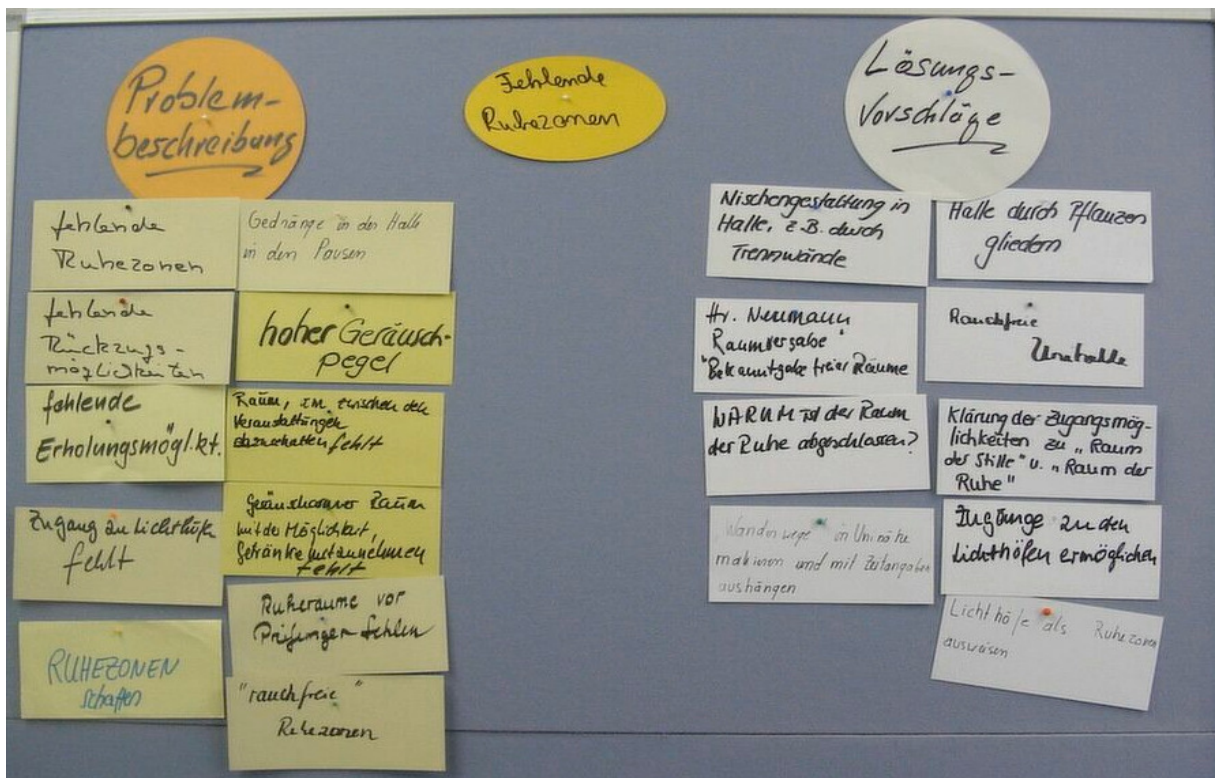 Problem-
beschreibung
fehlende
Ruhezonen
fehlende
Rückzugs-
möglichkeiten
fehlende
Erholungsmögl.kt.
Zugang zu Lichthöfe
fehlt
RUHEZONEN
schaffen
Gedränge in der Halle
in den Pausen
hoher Geräusch-
pegel
Raum, um zwischen den
Veranstaltungen
abzuschalten fehlt
Geräuscharmer Raum
mit der Möglichkeit,
Getränke mitzunehmen
fehlt
Ruheräume vor
Prüfungen fehlen
"rauchfreie"
Ruhezonen
Fehlende
Ruhezonen
Lösungs-
Vorschläge
Nischengestaltung in
Halle, z.B. durch
Trennwände
Hr. Neumann
Raumvergabe"
"Bekanntgabe freier Räume
WARUM ist der Raum
der Ruhe abgeschlossen?
Wanderwege in Uninähe
markieren und mit Zeitangaben
aushängen
Halle durch Pflanzen
gliedern
Rauchfreie
Unihalle
Klärung der Zugangsmög-
lichkeiten zu „Raum
der Stille" u. „Raum der
Ruhe"
Zugänge zu den
Lichthöfen ermöglichen
Lichthöfe als Ruhezonen
ausweisen